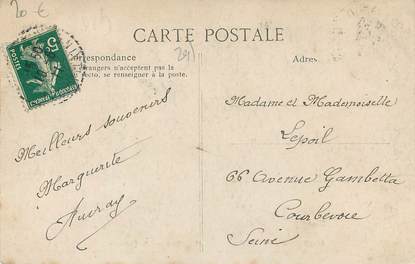 20 €
CARTE POSTALE
Correspondance
Étrangers n'acceptent pas la
recto, se renseigner à la poste.
5c
POSTES
Meilleurs souvenirs
Marguerite
Auvray
Adres
Madame et Mademoiselle
Lepoil
66 Avenue Gambetta
Courbevoie
Seine